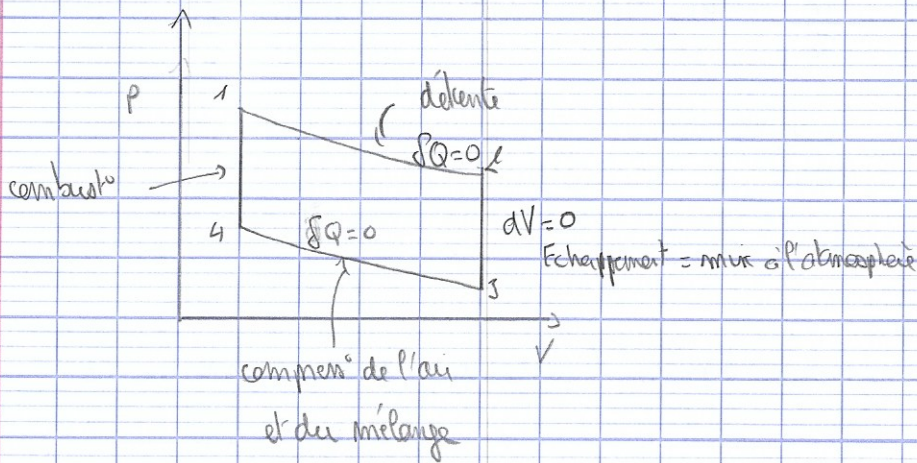 P
1
détente
δQ=0 2
combust°
4
δQ=0
dV=0
Echappement = mise à l'atmosphère
3
V
compress° de l'air
et du mélange